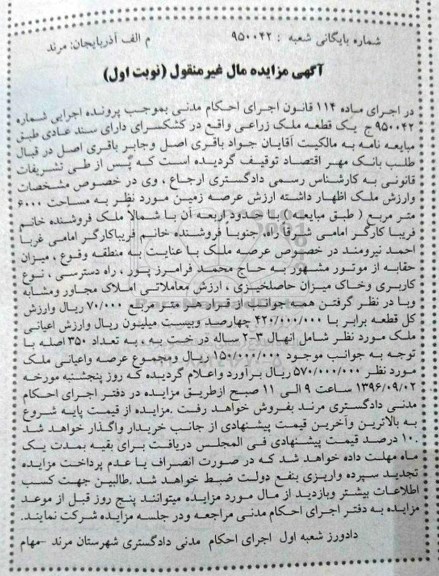 شماره بایگانی شعبه : ۹۵۰۰۴۲ م الف آذربایجان: مرند
آگهی مزایده مال غیرمنقول (نوبت اول)
در اجرای ماده ۱۱۴ قانون اجرای احکام مدنی بموجب پرونده اجرایی شماره
۹۵۰۰۴۲ ج یک قطعه ملک زراعی واقع در کشکسرای دارای سند عادی طبق
مبایعه نامه به مالکیت آقایان جواد باقری اصل وجابر باقری اصل در قبال
طلب بانک مهر اقتصاد توقیف گردیده است که پس از طی تشریفات
قانونی به کارشناس رسمی دادگستری ارجاع ، وی در خصوص مشخصات
وارزش ملک اظهار داشته ارزش عرصه زمین مورد نظر به مساحت ۶۰۰۰
متر مربع ( طبق مبایعه ) با حدود اربعه آن با شمالاً ملک فروشنده خانم
فریبا کارگر امامی شرقاً راه، جنوباً فروشنده خانم فریباکارگر امامی غرباً
احمد نیرومند در خصوص عرصه ملک با عنایت به منطقه وقوع ، میزان
حقابه از موتور مشهور به حاج محمد فرامرز پور ، راه دسترسی ، نوع
کاربری وخاک میزان حاصلخیزی ، ارزش معاملاتی املاک مجاور ومشابه
وبا در نظر گرفتن همه جوانب از قرار هر متر مربع ۷۰/۰۰۰ ریال وارزش
کل قطعه برابر با ۴۲۰/۰۰۰/۰۰۰ چهارصد وبیست میلیون ریال وارزش اعیانی
ملک مورد نظر شامل انهال ۳-۲ ساله درخت به ، به تعداد ۳۵۰ اصله با
توجه به جوانب موجود ۱۵۰/۰۰۰/۰۰۰ ریال ومجموع عرصه واعیانی ملک
مورد نظر ۵۷۰/۰۰۰/۰۰۰ ریال برآورد واعلام گردیده که روز پنجشنبه مورخه
۱۳۹۶/۰۹/۰۲ ساعت ۹ الی ۱۱ صبح ازطریق مزایده در دفتر اجرای احکام
مدنی دادگستری مرند بفروش خواهد رفت .مزایده از قیمت پایه شروع
به بالاترین وآخرین قیمت پیشنهادی از جانب خریدار واگذار خواهد شد
.۱۰ درصد قیمت پیشنهادی فی المجلس دریافت برای بقیه بمدت یک
ماه مهلت داده خواهد شد که در صورت انصراف یا عدم پرداخت مزایده
تجدید سپرده واریزی بنفع دولت ضبط خواهد شد .طالبین جهت کسب
اطلاعات بیشتر وبازدید از مال مورد مزایده میتوانند پنج روز قبل از موعد
مزایده به دفتر اجرای احکام مدنی مراجعه ودر جلسه مزایده شرکت نمایند.
دادورز شعبه اول اجرای احکام مدنی دادگستری شهرستان مرند –مهام